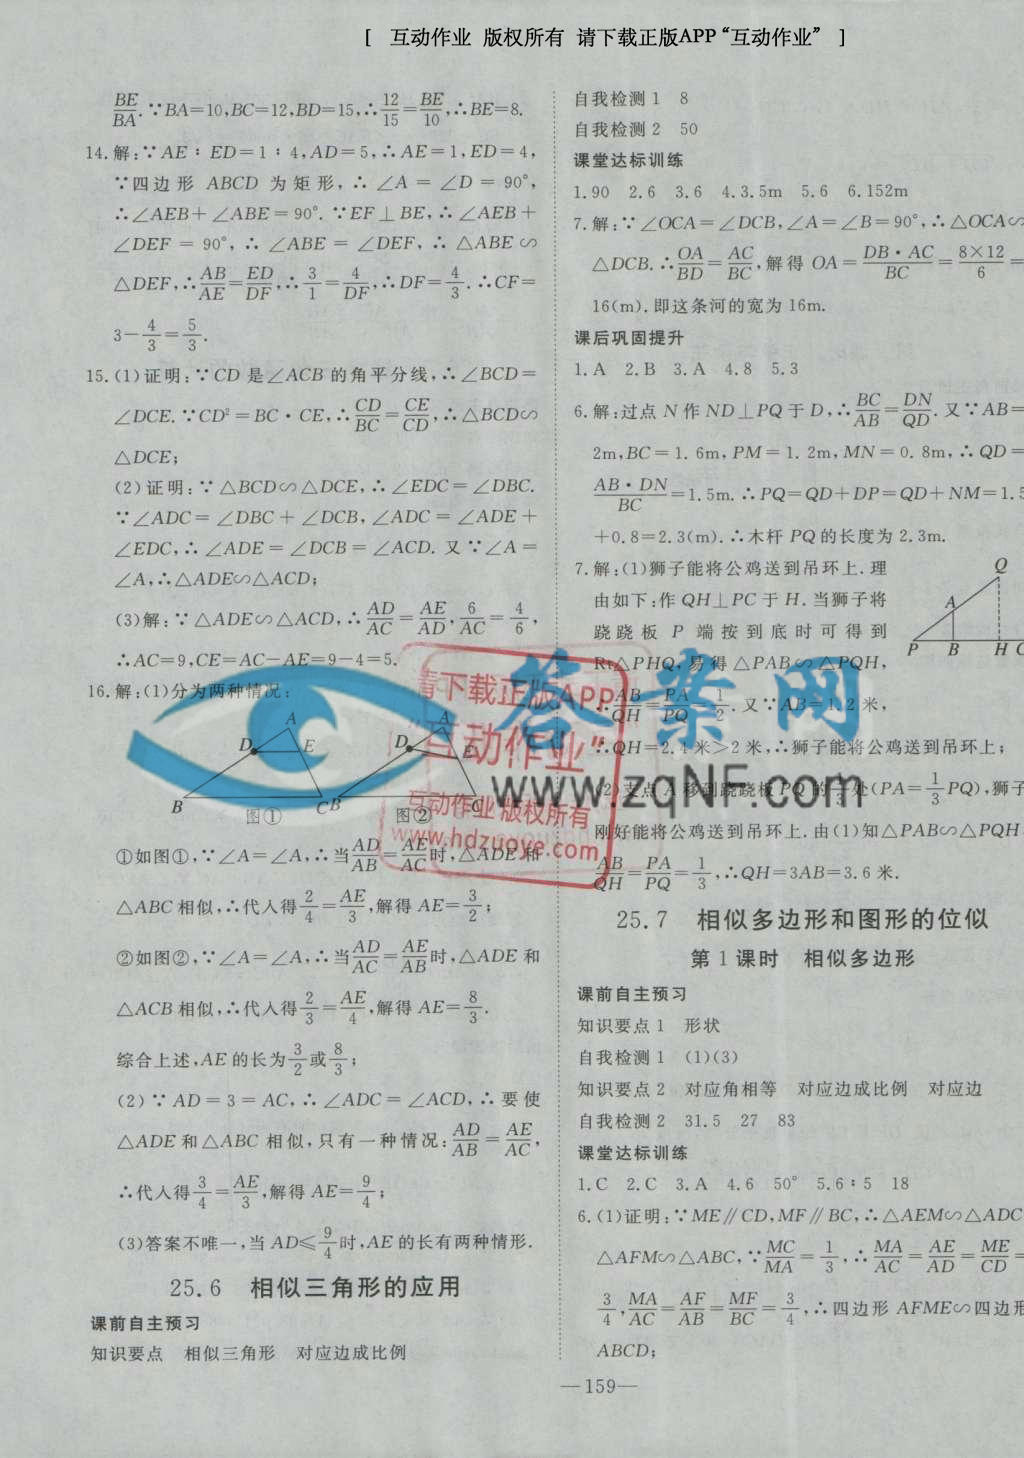 [ 互动作业 版权所有 请下载正版APP“互动作业” ]
BE/BA.∵BA=10,BC=12,BD=15,∴12/15=BE/10,∴BE=8.
14.解:∵AE∶ED=1∶4,AD=5,∴AE=1,ED=4,
∵四边形 ABCD 为矩形,∴∠A=∠D=90°,
∴∠AEB+∠ABE=90°.∵EF⊥BE,∴∠AEB+
∠DEF=90°,∴∠ABE=∠DEF,∴△ABE∽
△DEF,∴AB/AE=ED/DF,∴3/1=4/DF,∴DF=4/3.∴CF=
3-4/3=5/3.
15.(1)证明:∵CD 是∠ACB 的角平分线,∴∠BCD=
∠DCE.∵CD²=BC·CE,∴CD/BC=CE/CD,∴△BCD∽
△DCE;
(2)证明:∵△BCD∽△DCE,∴∠EDC=∠DBC.
∵∠ADC=∠DBC+∠DCB,∠ADC=∠ADE+
∠EDC,∴∠ADE=∠DCB=∠ACD.又∵∠A=
∠A,∴△ADE∽△ACD;
(3)解:∵△ADE∽△ACD,∴AD/AC=AE/AD,6/AC=4/6,
∴AC=9,CE=AC-AE=9-4=5.
16.解:(1)分为两种情况:
A D E B C 图①
A D E B C 图②
①如图①,∵∠A=∠A,∴当AD/AB=AE/AC时,△ADE 和
△ABC 相似,∴代入得2/4=AE/3,解得 AE=3/2;
②如图②,∵∠A=∠A,∴当AD/AC=AE/AB时,△ADE 和
△ACB 相似,∴代入得2/3=AE/4,解得 AE=8/3.
综合上述,AE 的长为3/2或8/3;
(2)∵AD=3=AC,∴∠ADC=∠ACD,∴要使
△ADE 和△ABC 相似,只有一种情况:AD/AB=AE/AC,
∴代入得3/4=AE/3,解得 AE=9/4;
(3)答案不唯一,当 AD≤9/4时,AE 的长有两种情形.
25.6 相似三角形的应用
课前自主预习
知识要点 相似三角形 对应边成比例
自我检测1 8
自我检测2 50
课堂达标训练
1.90 2.6 3.6 4.3.5m 5.6 6.152m
7.解:∵∠OCA=∠DCB,∠A=∠B=90°,∴△OCA∽
△DCB.∴OA/BD=AC/BC,解得 OA=DB·AC/BC=8×12/6=
16(m).即这条河的宽为16m.
课后巩固提升
1.A 2.B 3.A 4.8 5.3
6.解:过点 N 作 ND⊥PQ 于 D,∴BC/AB=DN/QD.又∵AB=
2m,BC=1.6m,PM=1.2m,MN=0.8m,∴QD=
AB·DN/BC=1.5m.∴PQ=QD+DP=QD+NM=1.5
+0.8=2.3(m).∴木杆 PQ 的长度为2.3m.
7.解:(1)狮子能将公鸡送到吊环上.理
由如下:作 QH⊥PC 于 H.当狮子将
跷跷板 P 端按到底时可得到
Rt△PHQ,易得△PAB∽△PQH,
∴AB/QH=PA/PQ=1/2.又∵AB=1.2米,
∴QH=2.4米>2米,∴狮子能将公鸡送到吊环上;
(2)支点 A 移到跷跷板 PQ 的1/3处(PA=1/3PQ),狮子
刚好能将公鸡送到吊环上.由(1)知△PAB∽△PQH
AB/QH=PA/PQ=1/3,∴QH=3AB=3.6米.
Q A P B H C
25.7 相似多边形和图形的位似
第1课时 相似多边形
课前自主预习
知识要点1 形状
自我检测1 (1)(3)
知识要点2 对应角相等 对应边成比例 对应边
自我检测2 31.5 27 83
课堂达标训练
1.C 2.C 3.A 4.6 50° 5.6∶5 18
6.(1)证明:∵ME∥CD,MF∥BC,∴△AEM∽△ADC
△AFM∽△ABC,∵MC/MA=1/3,∴MA/AC=AE/AD=ME/CD=
3/4,MA/AC=AF/AB=MF/BC=3/4,∴四边形 AFME∽四边形
ABCD;
—159—
答案网
www.zqNF.com
请下载正版APP
“互动作业”
互动作业 版权所有
www.hdzuoye.com